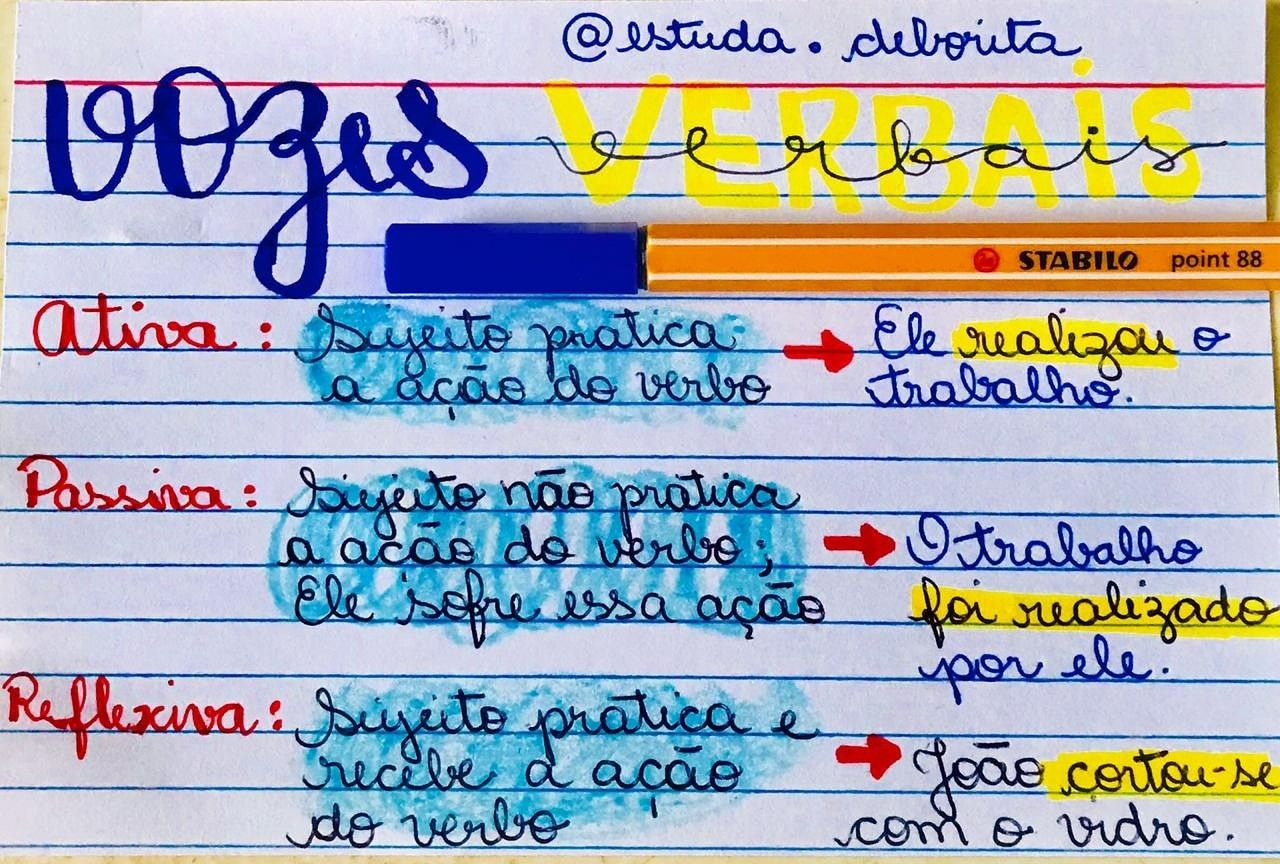 @estuda.deborita
vozes VERBAIS verbais
STABILO point 88
Ativa: Sujeito pratica → Ele realizou o
a ação do verbo trabalho.
Passiva: Sujeito não pratica
a acão do verbo; → O trabalho
Ele sofre essa ação foi realizado
por ele.
Reflexiva: Sujeito pratica e
recebe a ação → João cortou-se
do verbo com o vidro.